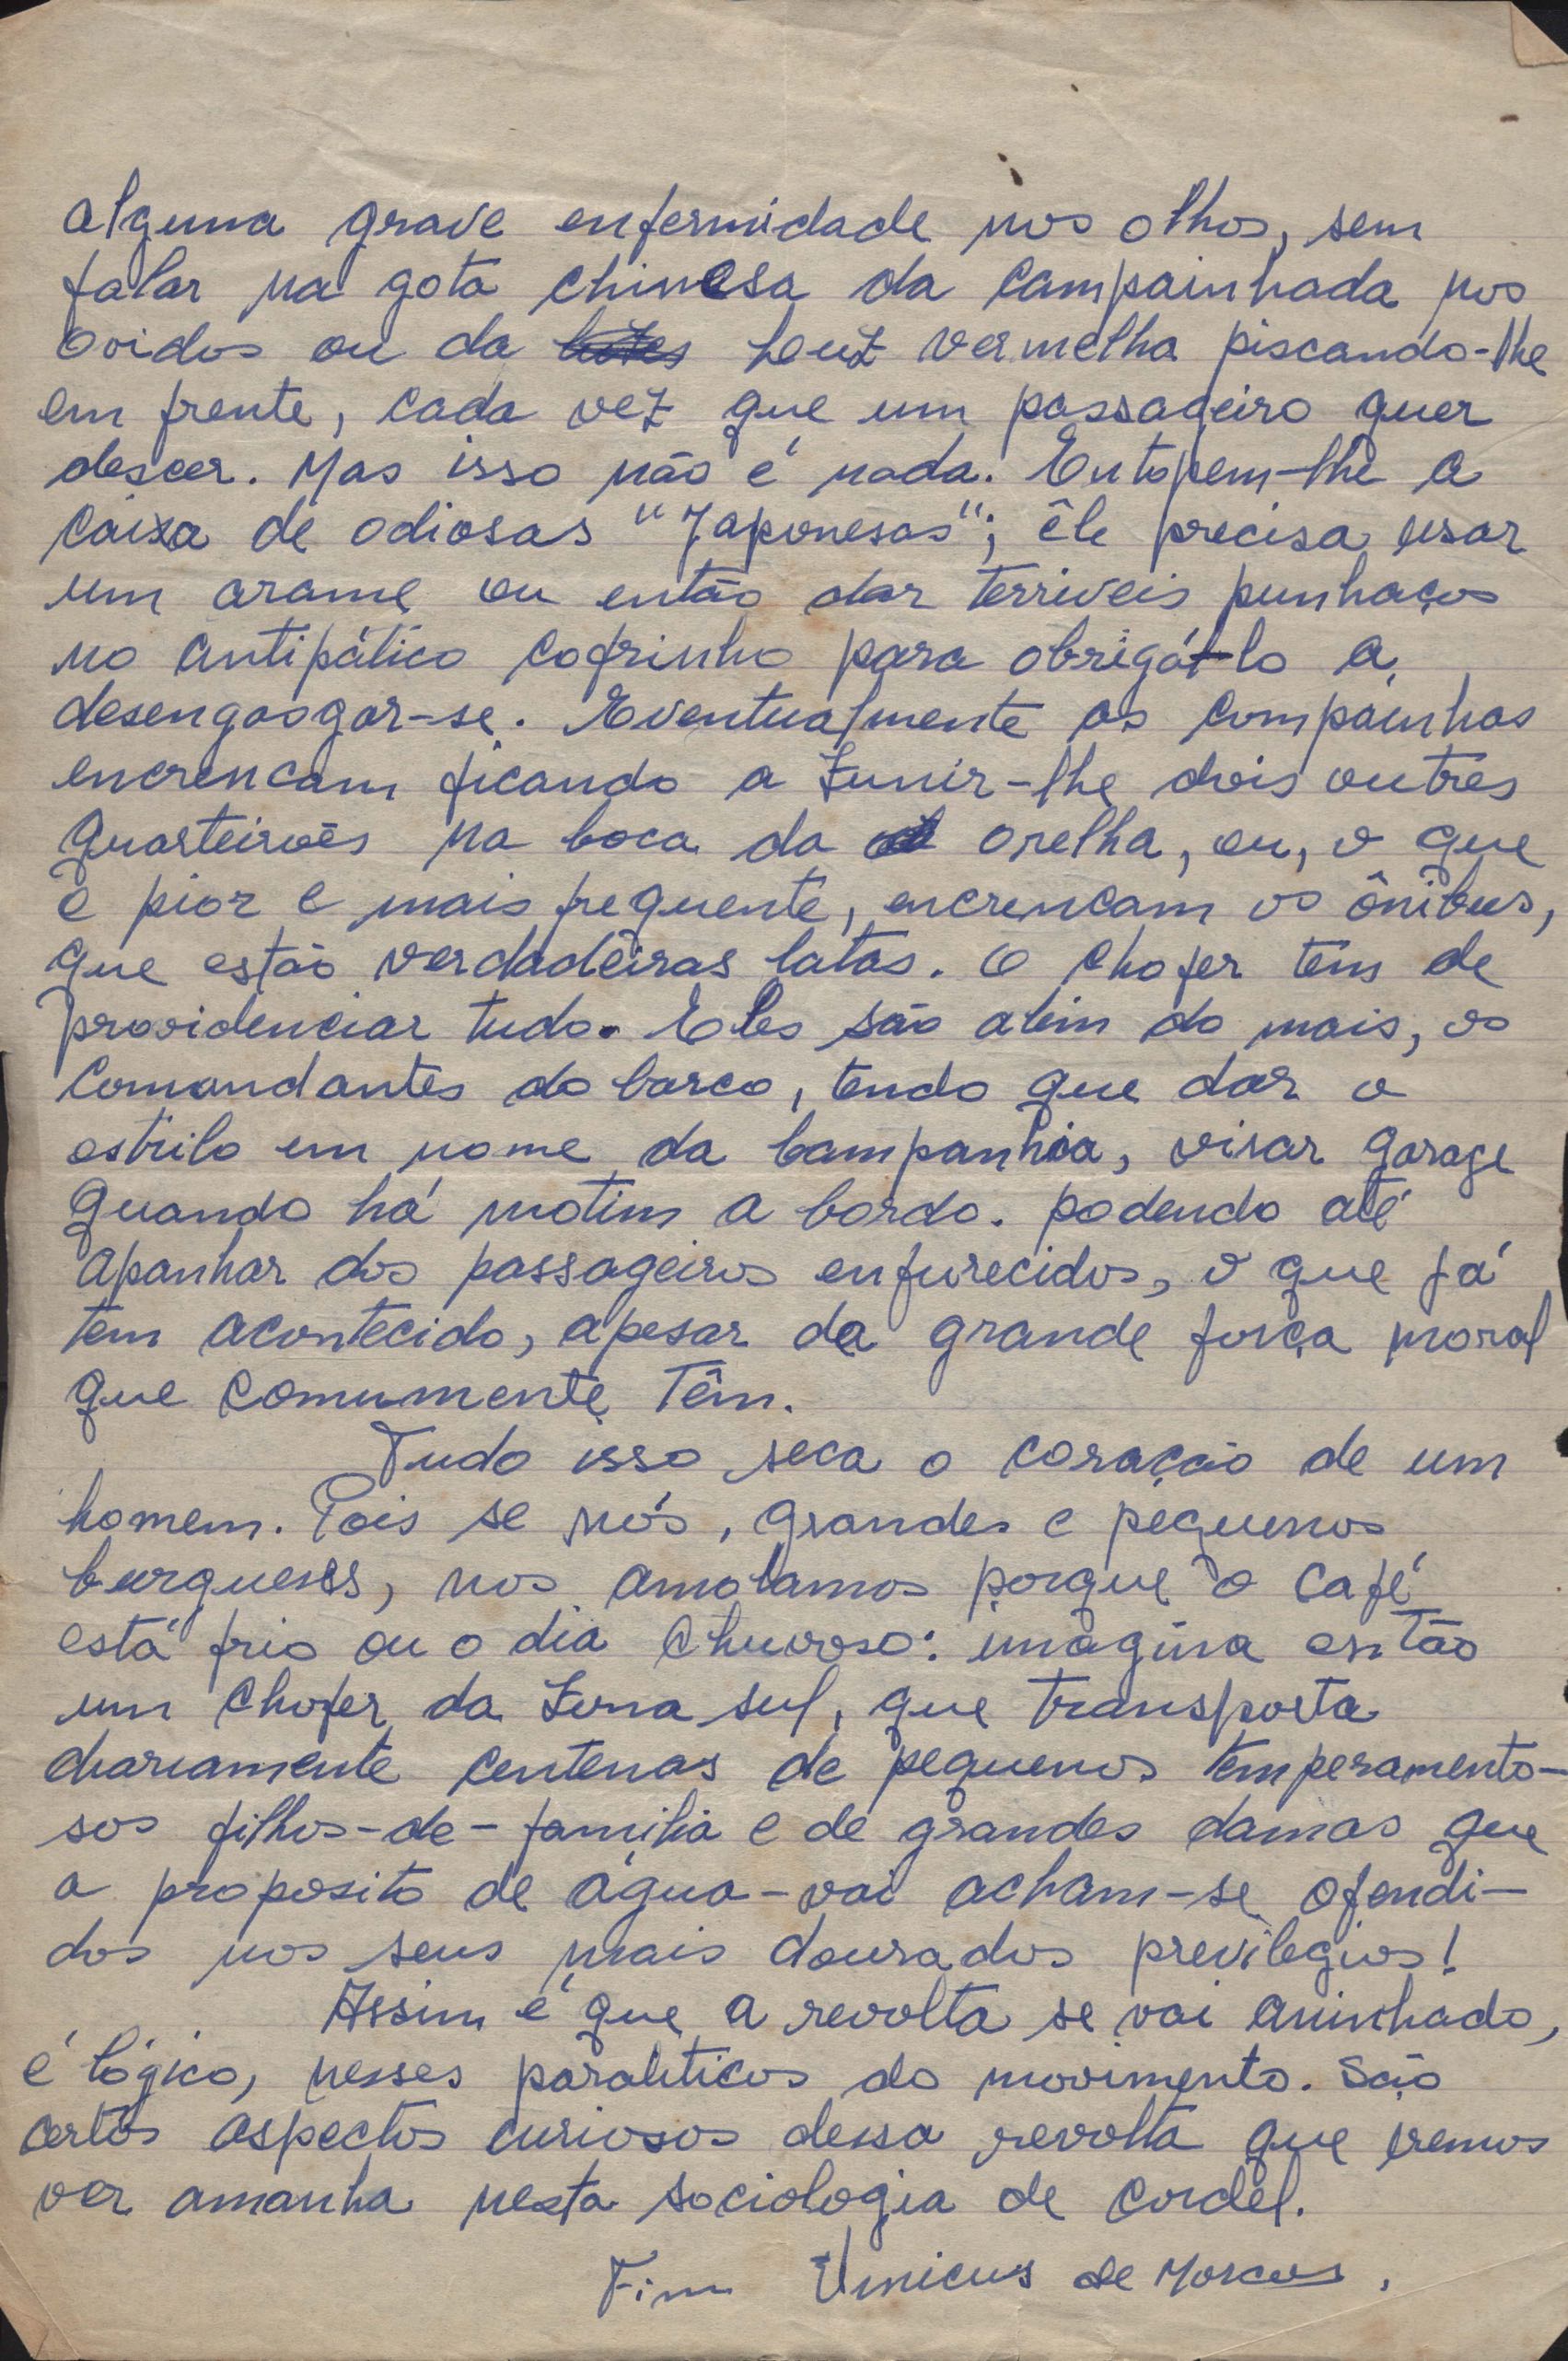 alguma grave enfermidade nos olhos, sem
falar na gota chinesa da campainhada nos
ovidos ou da luz vermelha piscando-lhe
em frente, cada vez que um passageiro quer
descer. Mas isso não é nada. Entopem-lhe a
caixa de odiosas "Japonesas"; êle precisa usar
um arame ou então dar terriveis punhaços
no antipático cofrinho para obrigá-lo a
desengasgar-se. Eventualmente as campainhas
encrencam ficando a zunir-lhe dois ou tres
quarteirões na boca da orelha, ou, o que
é pior e mais frequente, encrencam os ônibus,
que estão verdadeiras latas. O chofer tem de
providenciar tudo. Eles são alem do mais, os
comandantes do barco, tendo que dar o
estrilo em nome da Companhia, visar garage
quando há motim a bordo. podendo até
apanhar dos passageiros enfurecidos, o que já
tem acontecido, apesar da grande força moral
que comumente têm.
Tudo isso seca o coração de um
homem. Pois se nós, grandes e pequenos
burgueses, nos amolamos porque o café
está frio ou o dia chuvoso: imagina então
um chofer da Zona sul, que transporta
diariamente centenas de pequenos temperamento-
sos filhos-de-familia e de grandes damas que
a proposito de água-vai acham-se ofendi-
dos nos seus mais dourados previlegios!
Assim é que a revolta se vai aninhado,
é lógico, nesses paraliticos do movimento. São
certos aspectos curiosos dessa revolta que iremos
ver amanha nesta sociologia de cordel.
Fim Vinicius de Moraes.